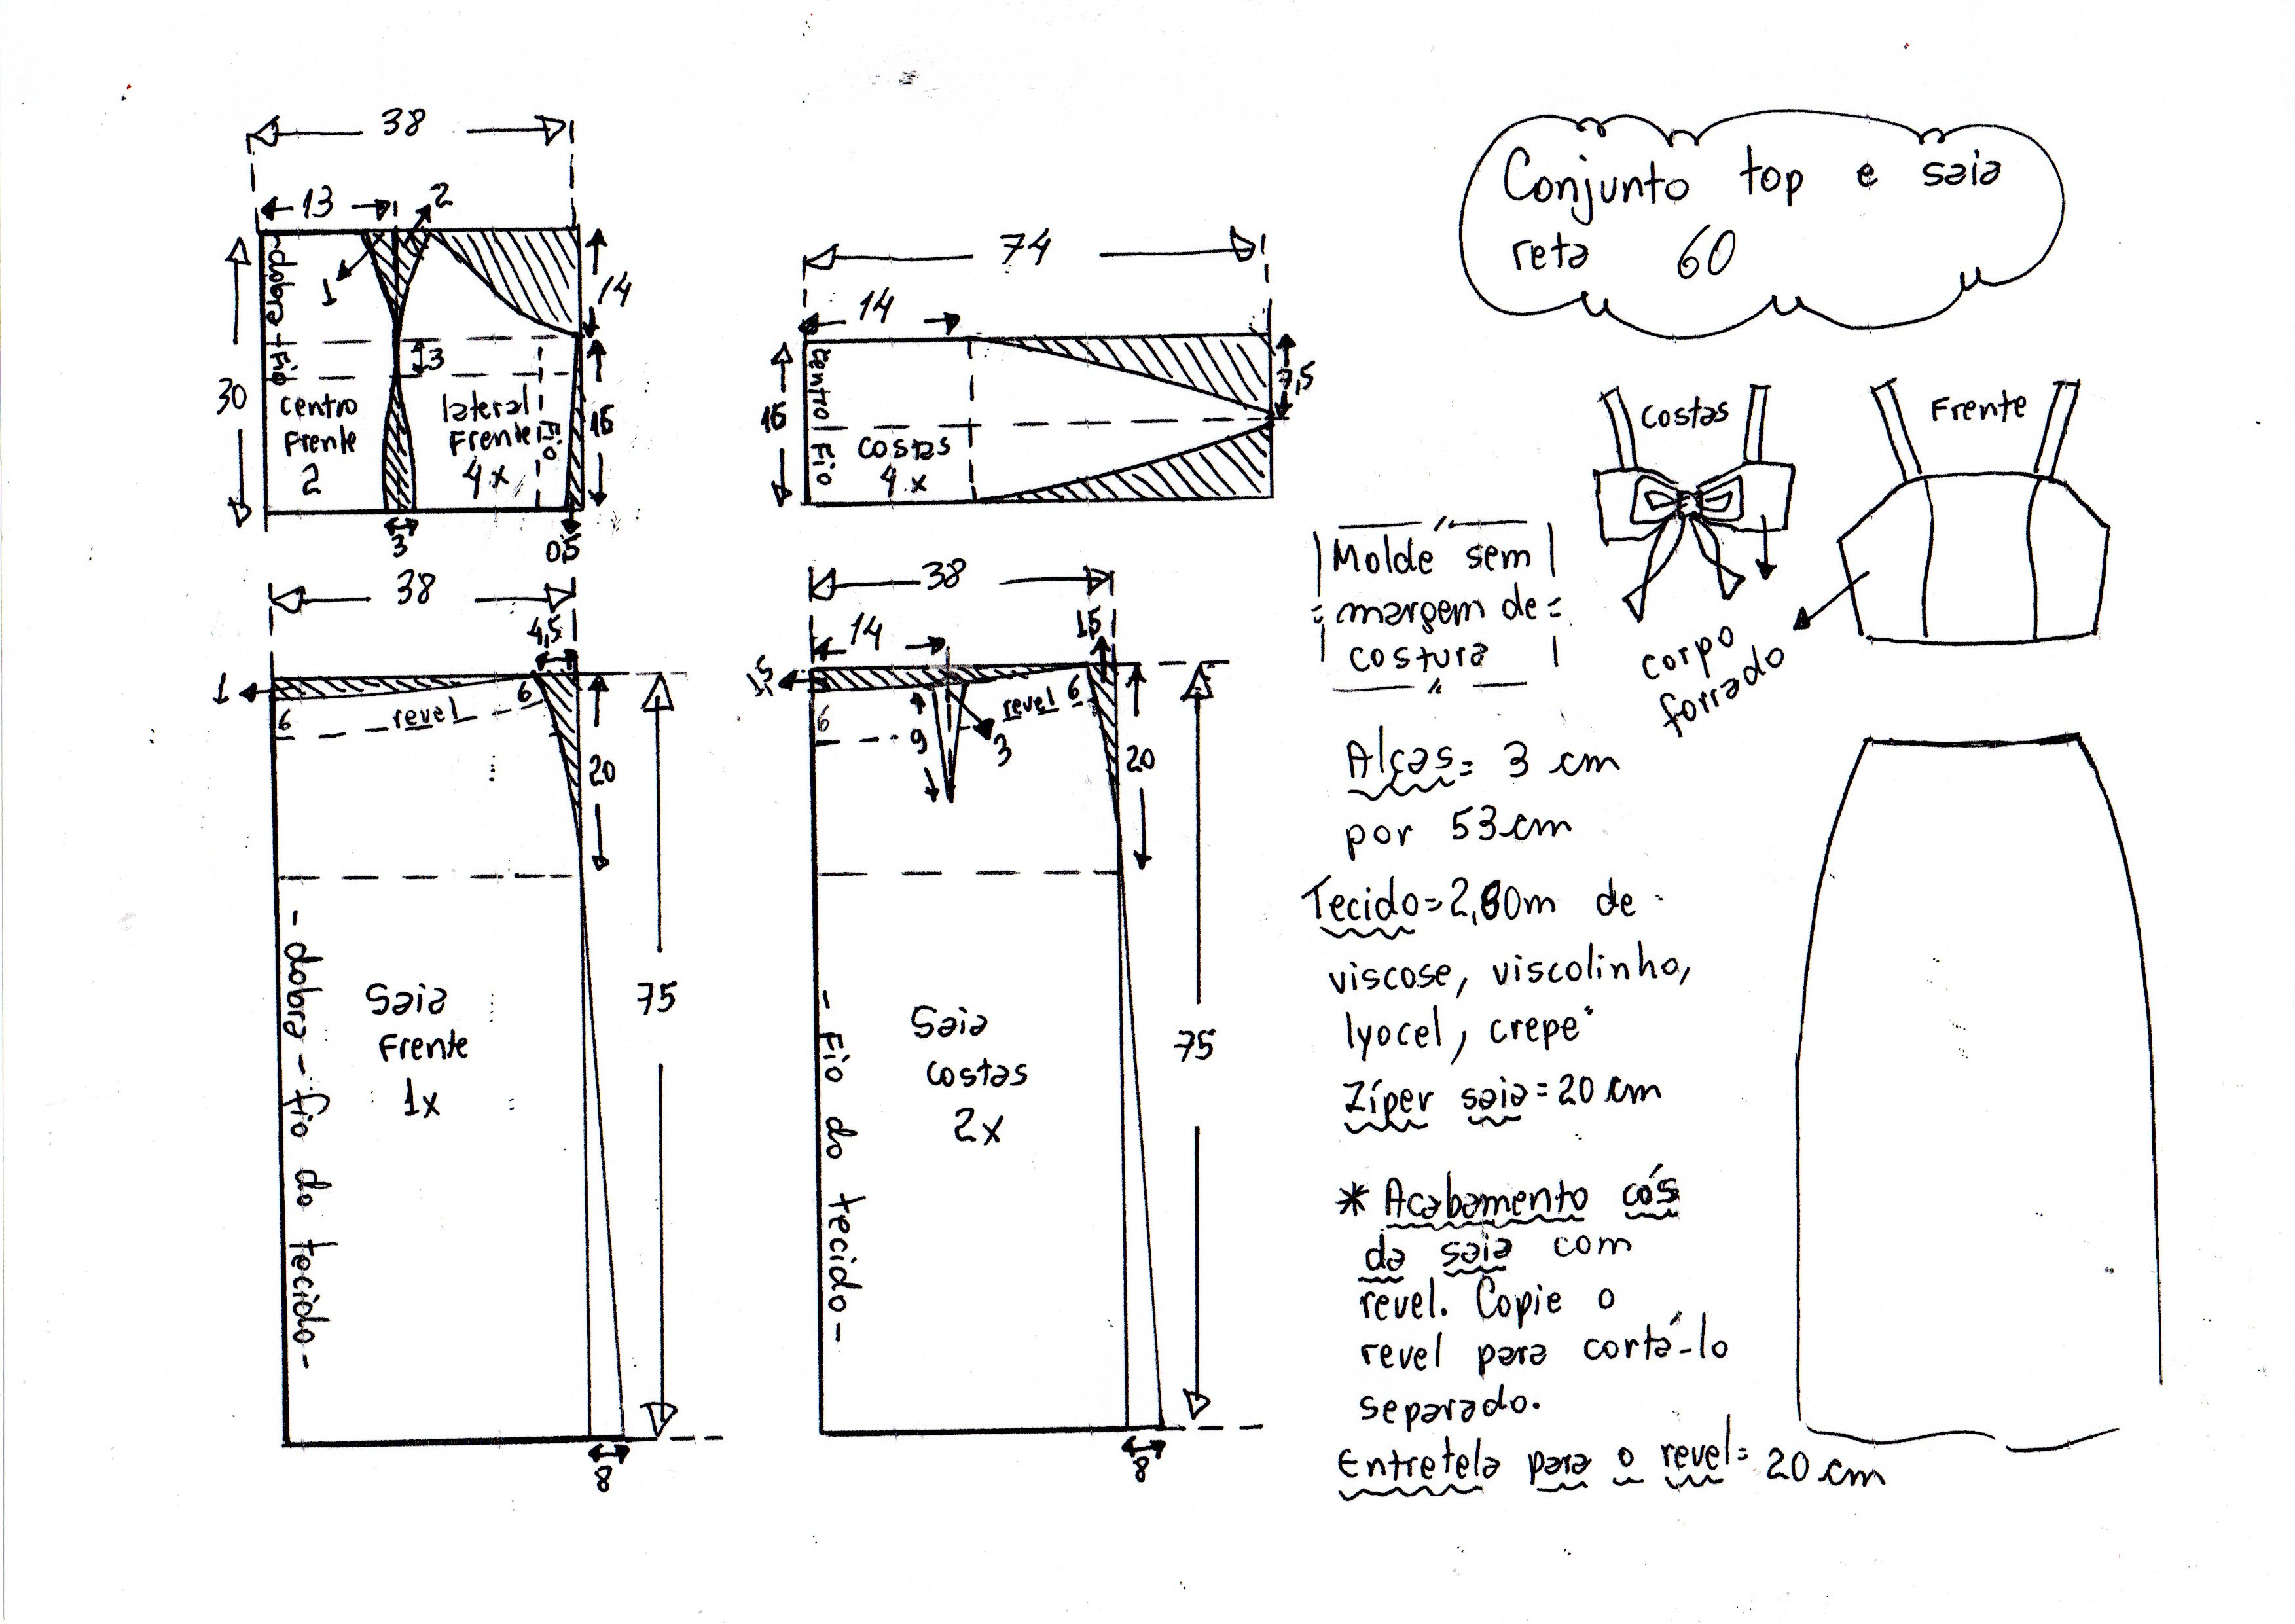 Conjunto top e saia
reta 60
38
13
2
1
14
30
dobra - fio
3
centro
Frente
2
lateral
Frente
4x
Fio
3
0,5
74
14
7,5
centro
Fio
costas
4x
Costas
Frente
corpo
forrado
38
4,5
1
6
revel
6
20
75
- dobra - fio do tecido -
Saia
Frente
1x
8
38
14
1,5
6
9
3
revel 6
20
75
- Fio do tecido -
Saia
costas
2x
8
Molde sem
margem de
costura
Alças = 3 cm
por 53 cm
viscose, viscolinho,
lyocel, crepe
Zíper saia = 20 cm
* Acabamento cós
da saia com
revel. Copie o
revel para cortá-lo
separado.
Entretela para o revel = 20 cm